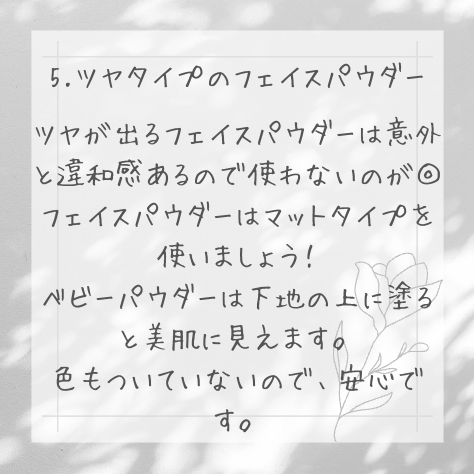 5.ツヤタイプのフェイスパウダー
ツヤが出るフェイスパウダーは意外
と違和感あるので使わないのが◎
フェイスパウダーはマットタイプを
使いましょう!
ベビーパウダーは下地の上に塗る
と美肌に見えます。
色もついていないので、安心で
す。